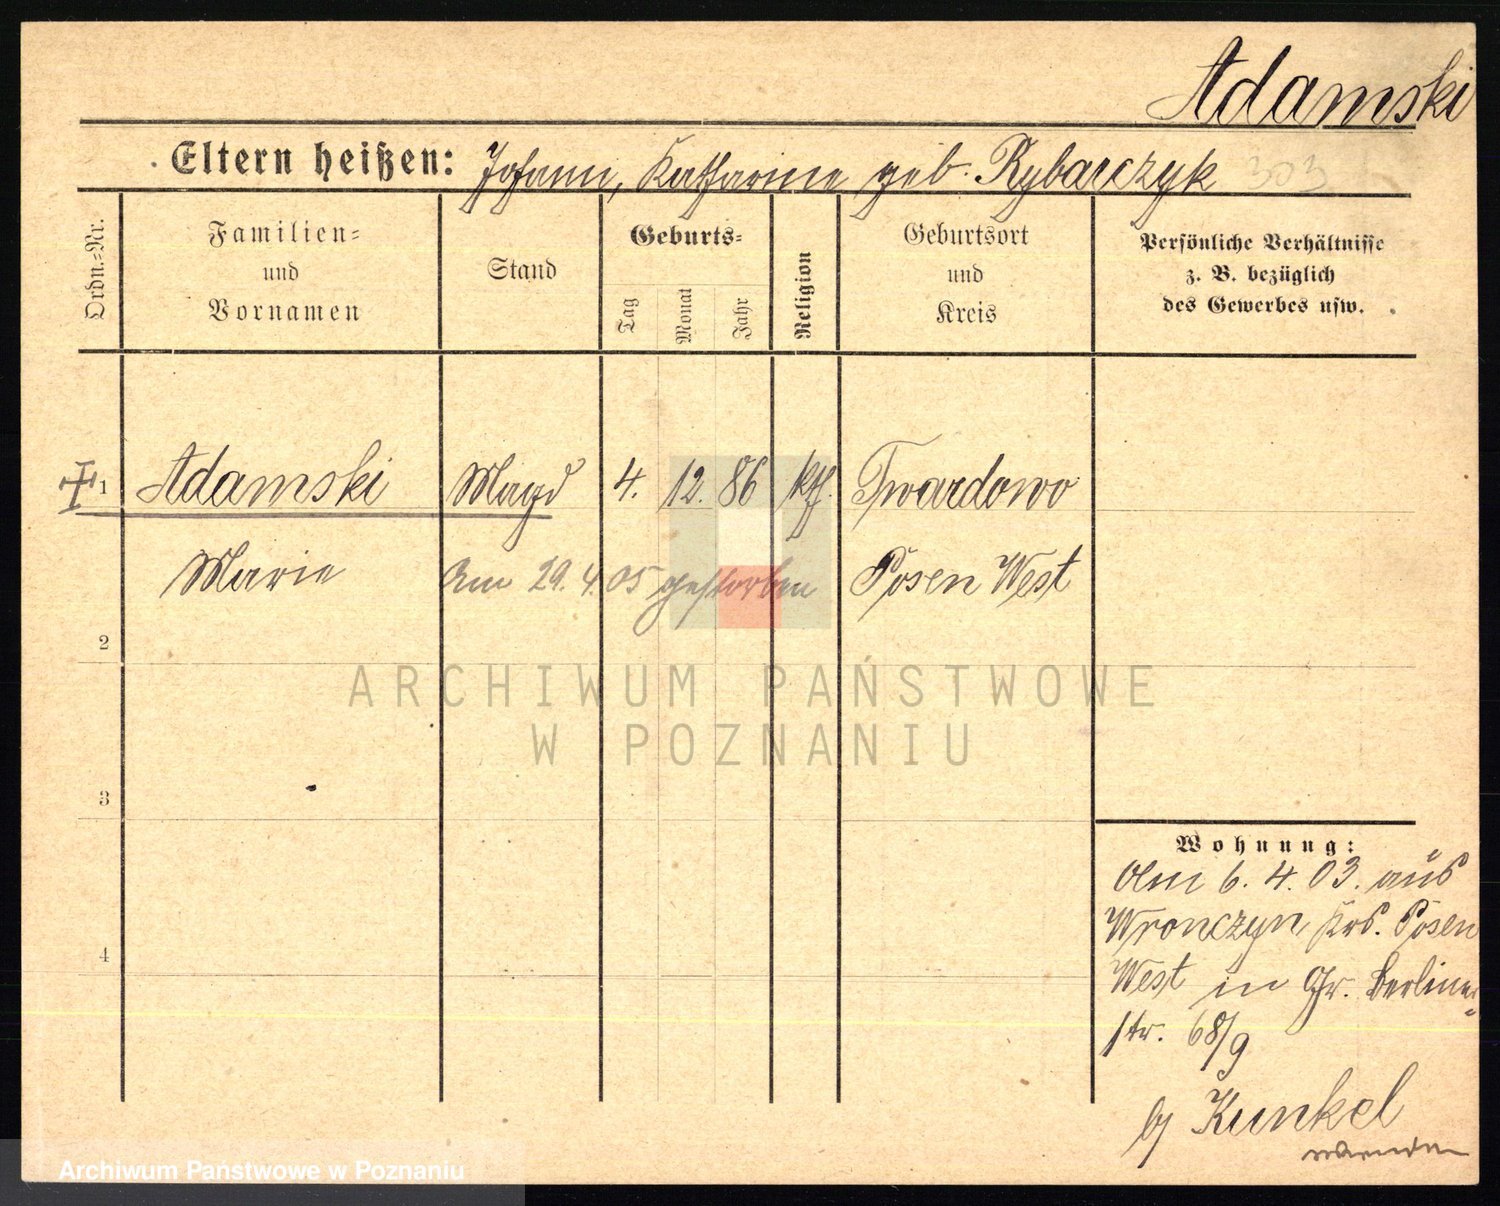 Adamski
Eltern heißen: Johann, Katharine geb. Rybarczyk 303
Ordn.-Nr.
Familien-
und
Vornamen
Stand
Geburts-
Tag
Monat
Jahr
Religion
Geburtsort
und
Kreis
Persönliche Verhältnisse
z. B. bezüglich
des Gewerbes usw.
1 Adamski Magd 4. 12. 86 kth. Twardowo
Marie Am 29.4.05 gestorben Posen West
2
ARCHIWUM PAŃSTWOWE
W POZNANIU
3
Wohnung:
Am 6. 4. 03. aus
Wronczyn Krs. Posen
4
West in Gr. Berliner
str. 68/9
by Kunkel
wenden
Archiwum Państwowe w Poznaniu